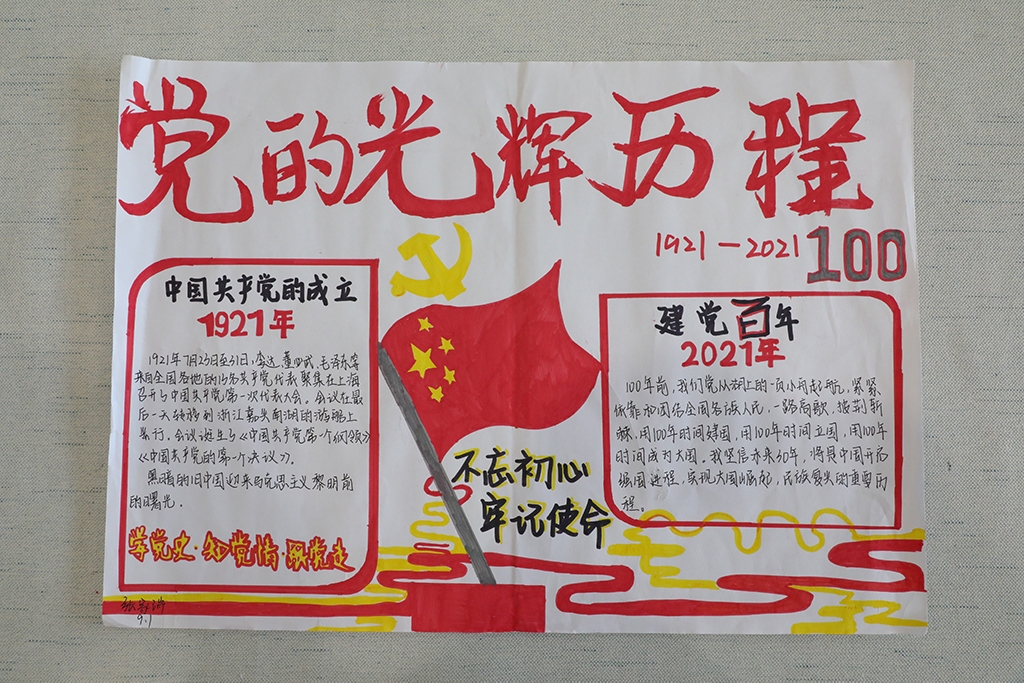 党的光辉历程
1921—2021 100
中国共产党的成立
1921年
1921年7月23日至31日,李达、董必武、毛泽东等
来自全国各地的13名共产党代表聚集在上海
召开了中国共产党第一次代表大会。会议在最
后一天转移到浙江嘉兴南湖的游船上
举行,会议诞生了《中国共产党第一个纲领》
《中国共产党的第一个决议》。
黑暗的旧中国迎来马克思主义黎明前
的曙光。
学党史·知党情·跟党走
不忘初心
牢记使命
建党百年
2021年
100年前,我们党从湖上的一页小舟起航,紧紧
依靠和团结全国各族人民,一路高歌,披荆斩
棘,用100年时间建国,用100年时间立国,用100年
时间成为大国。我坚信未来30年,将是中国开启
强国进程,实现大国崛起,民族复兴的重要历
程。
9.1